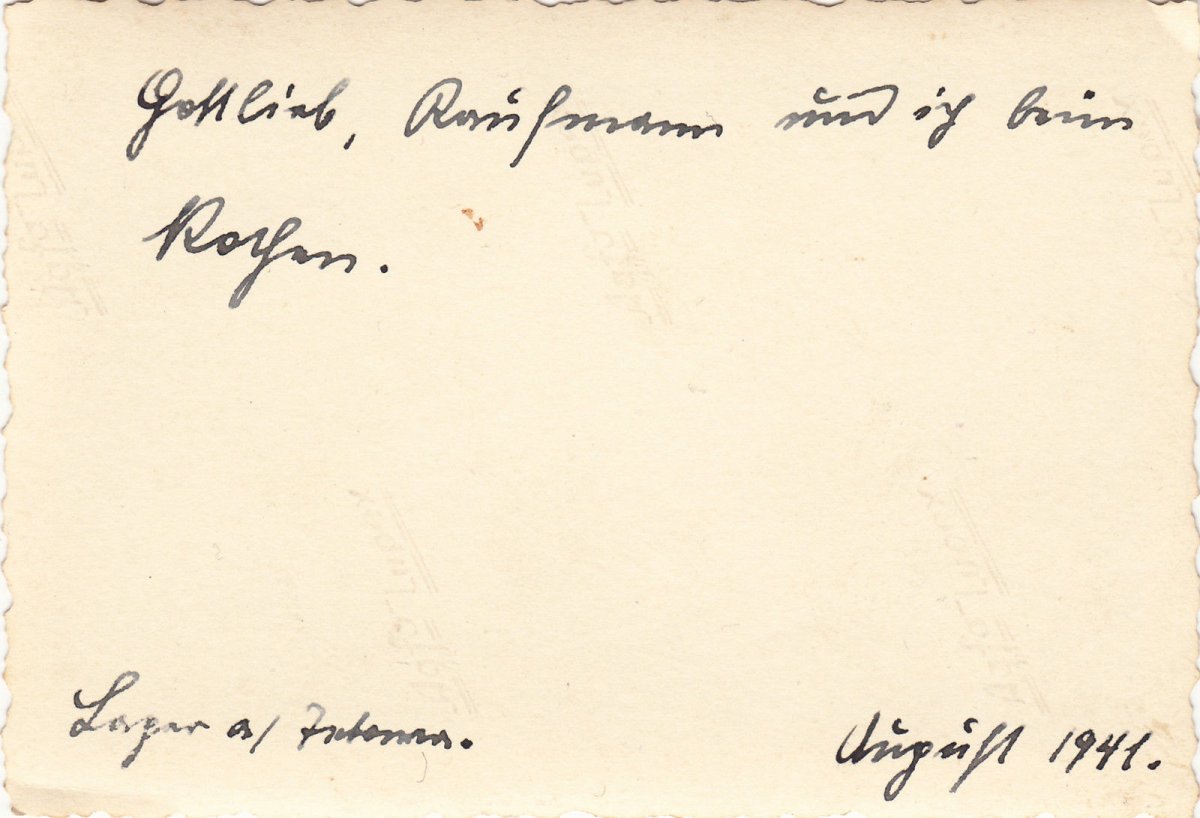 Gottlieb, Kaufmann und ich beim
Kochen.
Lager a/
August 1941.